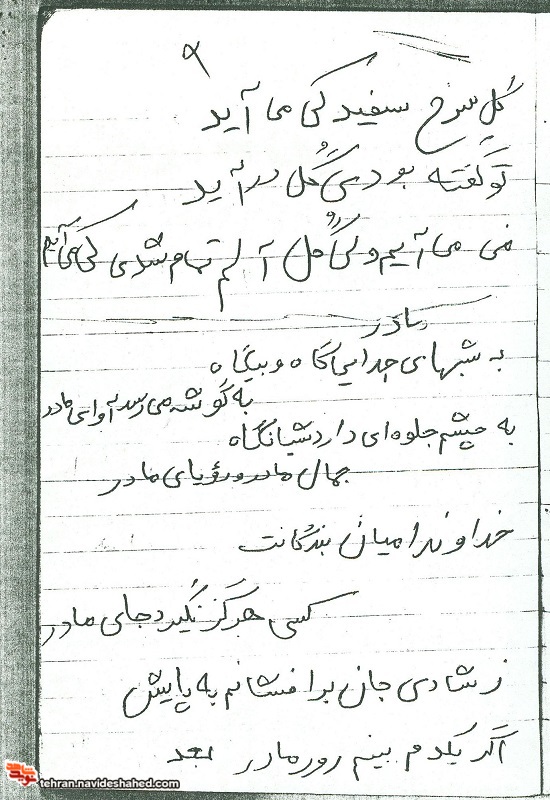 ۹
گل سرخ سفید کی می آید
تو گفته بودی گل در آید
من می آیم و گل آلم تمام شدی کی می آیم
مادر
به شبهای جدایی گاه و بیگاه
به گوشم می رسد آوای مادر
به چشم جلوه ای دارد شبانگاه
جمال مادر و رؤیای مادر
خداوندا میان بندگانت
کسی هرگز نگیرد جای مادر
ز شادی جان برافشانم به پایش
اگر یکدم بینم روی مادر بعد
tehran.navideshahed.com